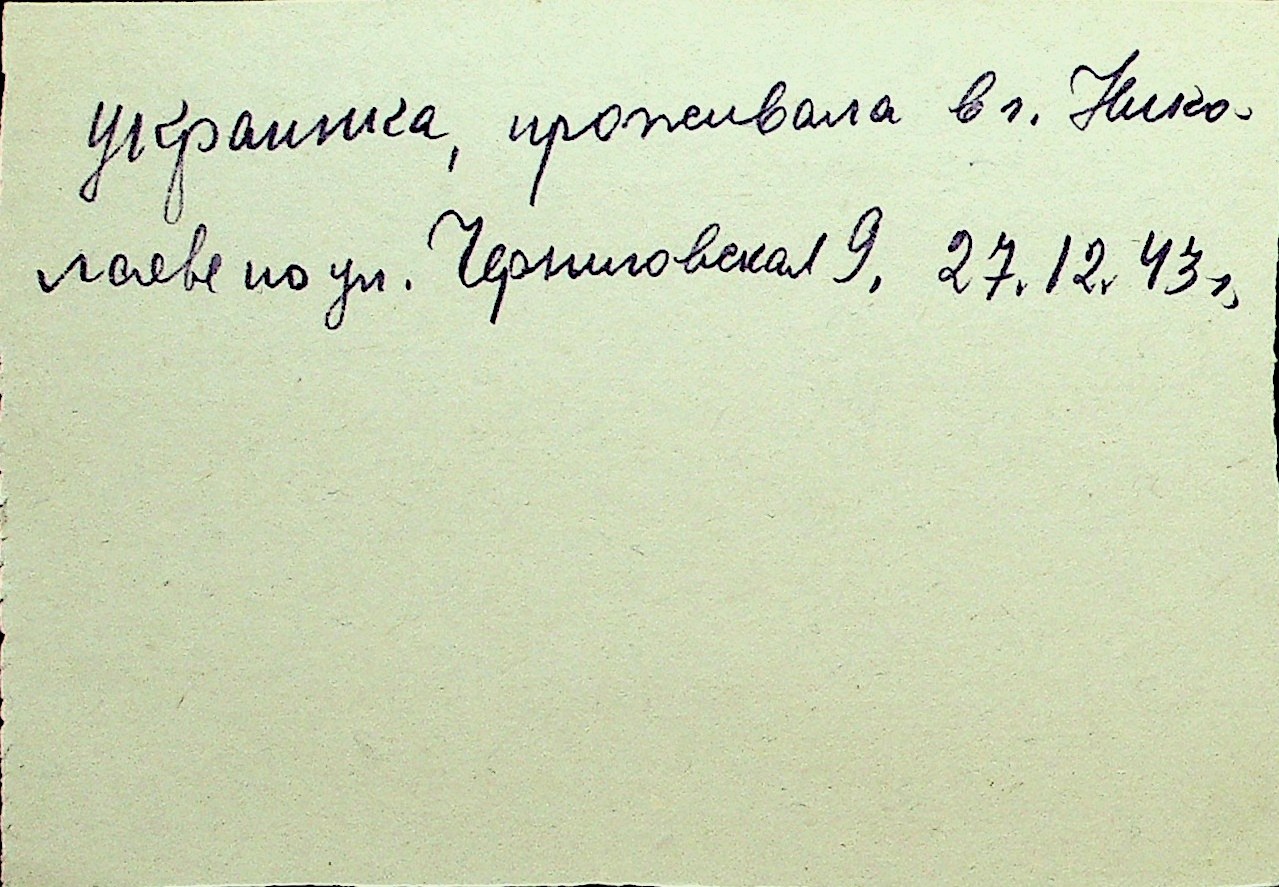 украинка, проживала в г. Нико-
лаеве по ул. Черниговская 9. 27.12.43 г,